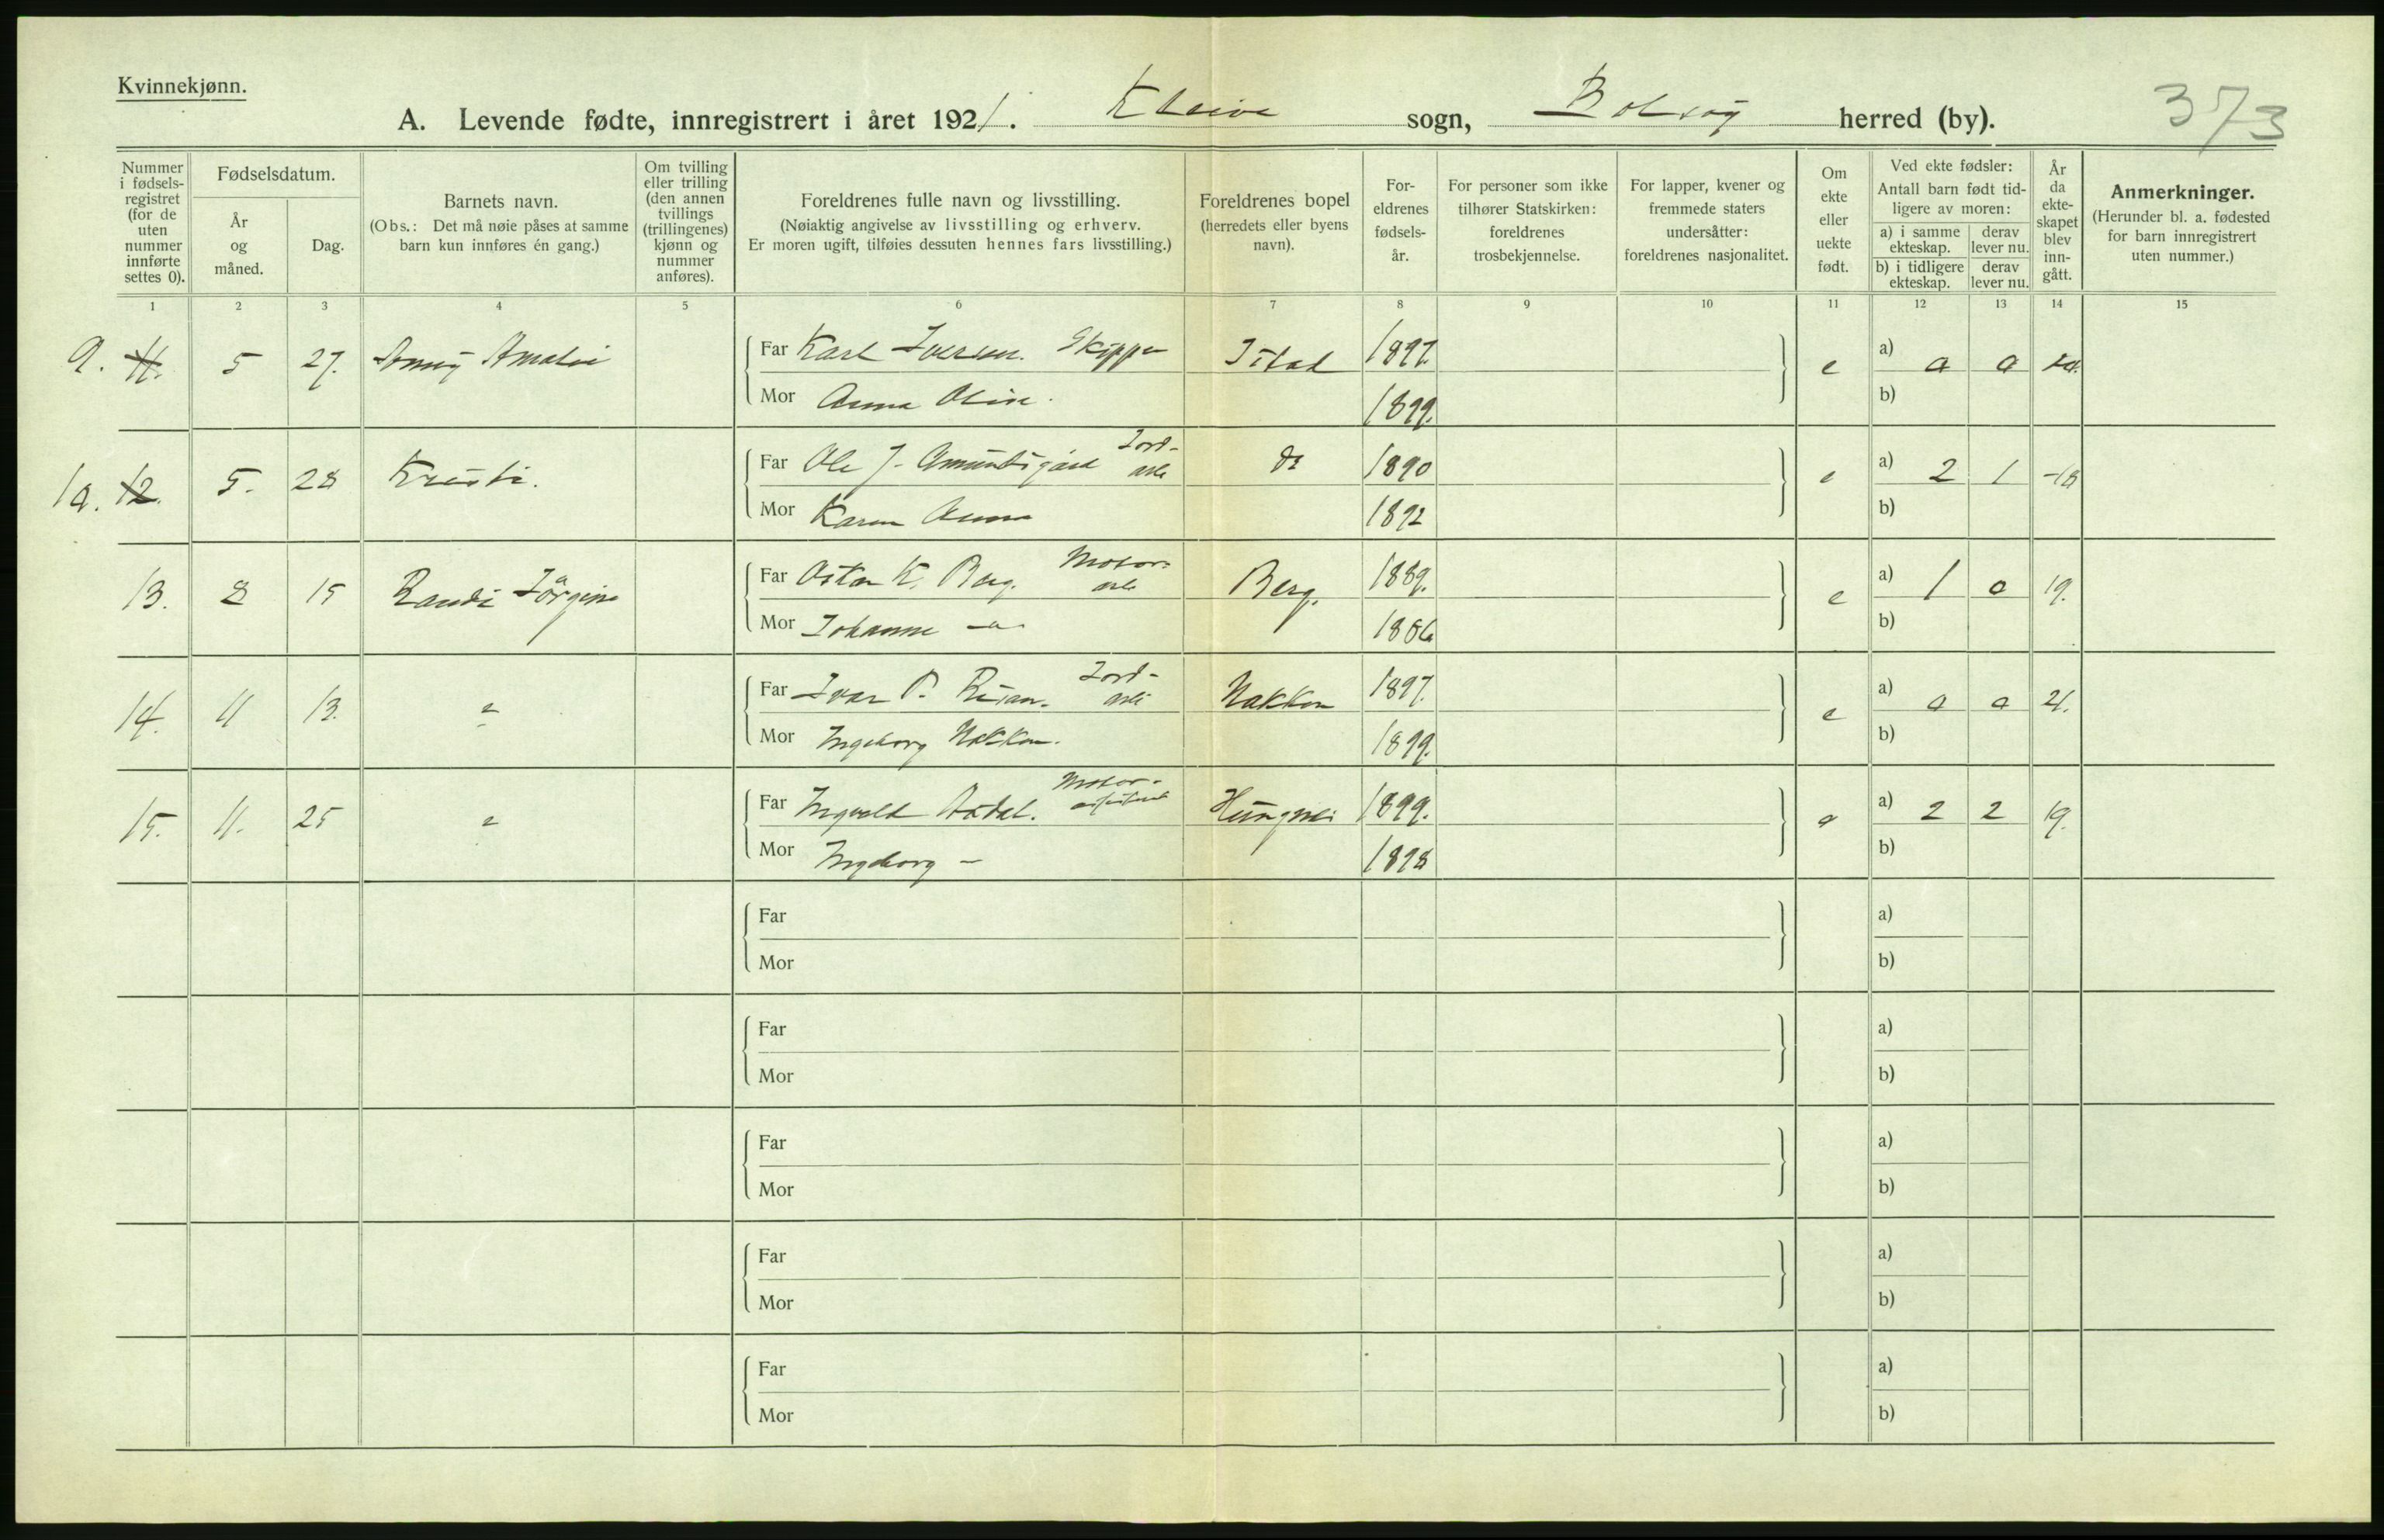 Kvinnekjønn.
373
A. Levende fødte, innregistrert i året 1921. Kleive sogn, Bolsøy herred (by).
Nummer i fødsels-registret (for de uten nummer innførte settes 0).
Fødselsdatum.
År og måned.
Dag.
Barnets navn.
(Obs.: Det må nøie påses at samme barn kun innføres én gang.)
Om tvilling eller trilling (den annen tvillings (trillingenes) kjønn og nummer anføres).
Foreldrenes fulle navn og livsstilling.
(Nøiaktig angivelse av livsstilling og erhverv.
Er moren ugift, tilføies dessuten hennes fars livsstilling.)
Foreldrenes bopel (herredets eller byens navn).
For-eldrenes fødsels-år.
For personer som ikke tilhører Statskirken: foreldrenes trosbekjennelse.
For lapper, kvener og fremmede staters undersåtter: foreldrenes nasjonalitet.
Om ekte eller uekte født.
Ved ekte fødsler:
Antall barn født tid-ligere av moren:
a) i samme ekteskap. derav lever nu.
b) i tidligere ekteskap. derav lever nu.
År da ekte-skapet blev inn-gått.
Anmerkninger.
(Herunder bl. a. fødested for barn innregistrert uten nummer.)
1 2 3 4 5 6 7 8 9 10 11 12 13 14 15
9. 11. 5 27. Amalie Far Karl Iversen. Skipper 1897. e a) 0 0 20.
Mor Anna Oline. 1899. b)
10. 12. 5. 28 Kristi. Far Ole J. Jord- arb do 1890 e a) 2 1 -18
Mor Karen Anna 1892 b)
13. 8 15 Randi Jørgine Far Oskar K. Berg. Motor- arb Berg. 1889. e a) 1 0 19.
Mor Johanne -"- 1886 b)
14. 11 13. " Far Ivar P. Jord- arb Nakken 1897. e a) 0 0 21.
Mor Ingeborg Nakken. 1899. b)
15. 11. 25 " Far Ingvald Motor- 1899. e a) 2 2 19.
Mor Ingeborg - 1898 b)
Far a)
Mor b)
Far a)
Mor b)
Far a)
Mor b)
Far a)
Mor b)
Far a)
Mor b)